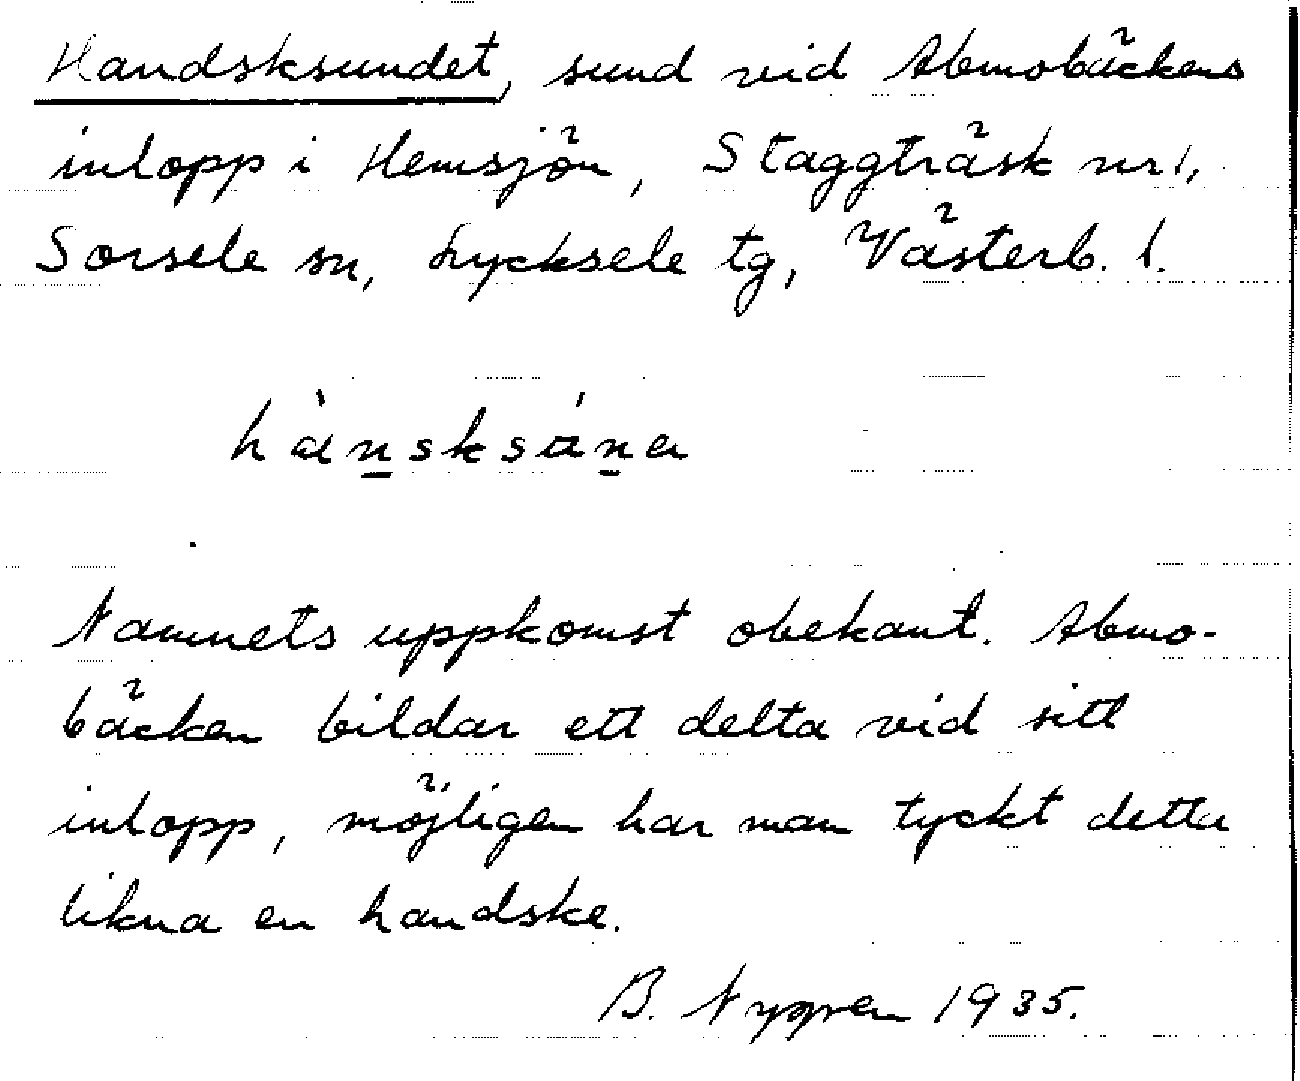 Handsksundet, sund vid Abmobäckens
inlopp i Hemsjön, Staggträsk nr 1,
Sorsele sn, Lycksele tg, Västerb. l.
Namnets uppkomst obekant. Abmo-
bäcken bildar ett delta vid sitt
inlopp, möjligen har man tyckt detta
likna en handske.
B. Nygren 1935.